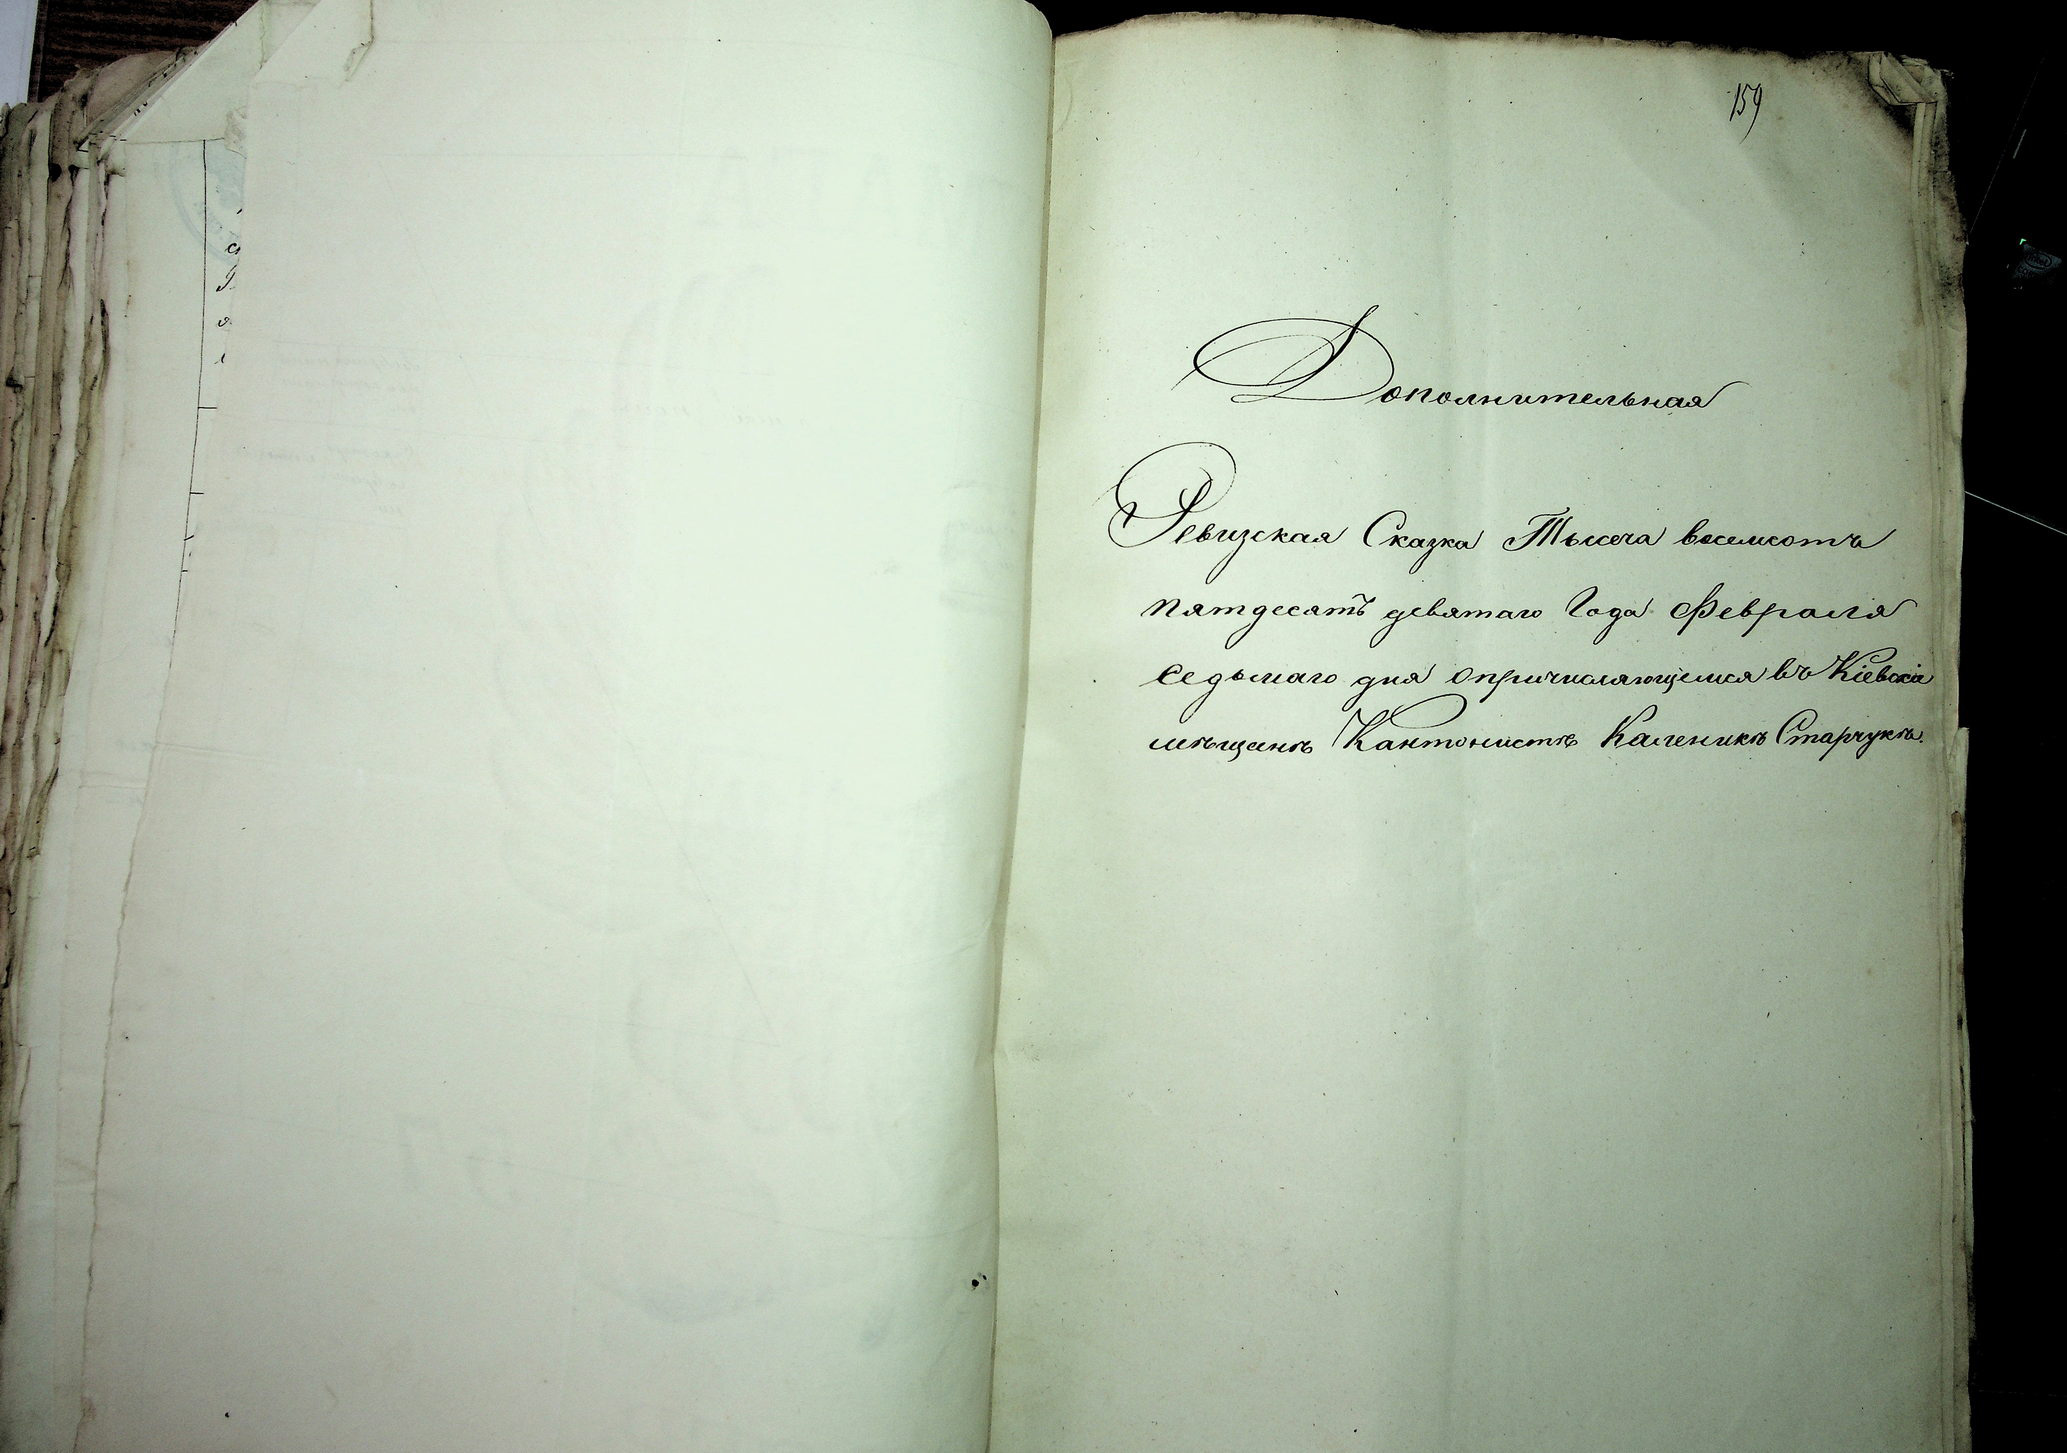 159
Дополнительная
Ревизская Сказка Тысеча восемсотъ
пятдесятъ девятаго Года Февраля
седьмаго дня опричисляющемся въ Кіевскіи
мѣщанѣ Кантонистѣ Каленикѣ Старчукѣ.